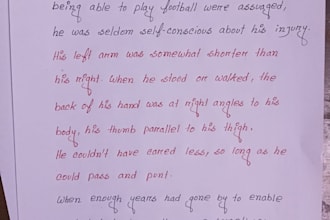 being able to play football were assuaged,
he was seldom self-conscious about his injury.
His left arm was somewhat shorter than
his right. When he stood or walked, the
back of his hand was at right angles to his
body, his thumb parallel to his thigh.
He couldn't have cared less, so long as he
could pass and punt.
When enough years had gone by to enable